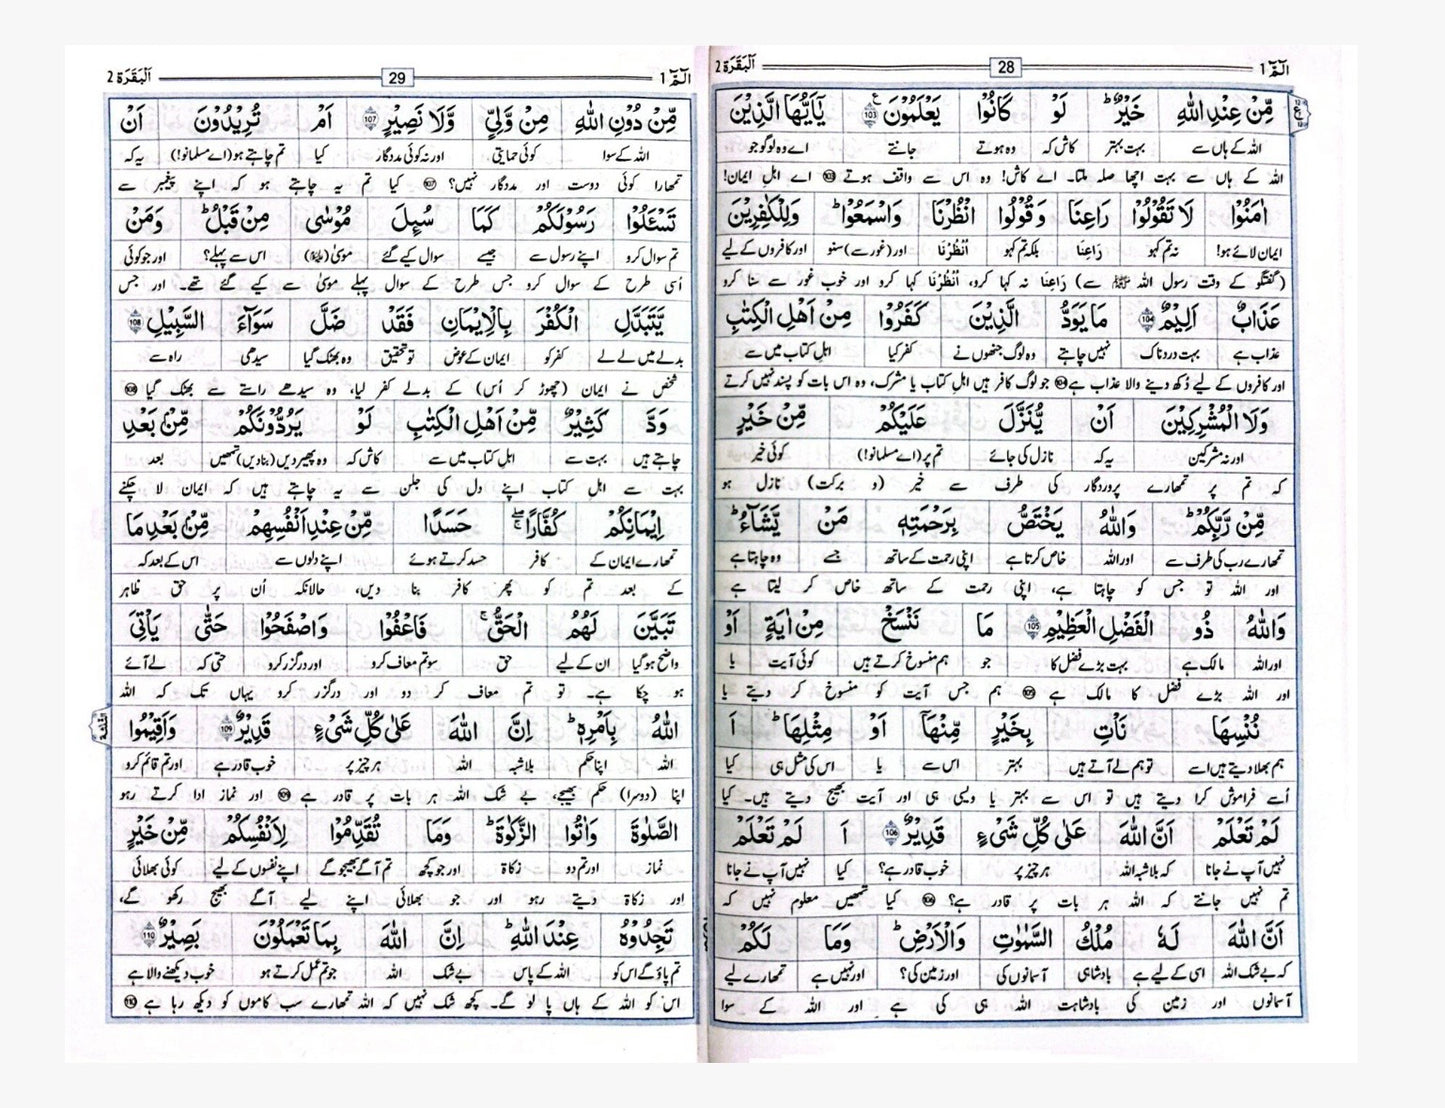 الٓمّٓ 1
28
اَلْبَقَرَة 2
مِّنْ عِنْدِ اللّٰهِ خَيْرٌ ؕ لَوْ كَانُوْا يَعْلَمُوْنَ ۧ 103 يٰۤاَيُّهَا الَّذِيْنَ
اللہ کے ہاں سے بہت بہتر کاش کہ وہ ہوتے جانتے اے وہ لوگو جو
اللہ کے ہاں سے بہت اچھا صلہ ملتا۔ اے کاش! وہ اس سے واقف ہوتے 103 اے اہلِ ایمان!
اٰمَنُوْا لَا تَقُوْلُوْا رَاعِنَا وَقُوْلُوا انْظُرْنَا وَاسْمَعُوْا ؕ وَلِلْكٰفِرِيْنَ
ایمان لائے ہو! نہ تم کہو رَاعِنَا بلکہ تم کہو اُنْظُرْنَا اور (غور سے) سنو اور کافروں کے لیے
(گفتگو کے وقت رسول اللہ ﷺ سے) رَاعِنَا نہ کہا کرو، اُنْظُرْنَا کہا کرو اور خوب غور سے سنا کرو
عَذَابٌ اَلِيْمٌ 104 مَا يَوَدُّ الَّذِيْنَ كَفَرُوْا مِنْ اَهْلِ الْكِتٰبِ
عذاب ہے بہت دردناک نہیں چاہتے وہ لوگ جنھوں نے کفر کیا اہلِ کتاب میں سے
اور کافروں کے لیے دُکھ دینے والا عذاب ہے 104 جو لوگ کافر ہیں اہلِ کتاب یا مشرک، وہ اس بات کو پسند نہیں کرتے
وَلَا الْمُشْرِكِيْنَ اَنْ يُّنَزَّلَ عَلَيْكُمْ مِّنْ خَيْرٍ
اور نہ مشرکین یہ کہ نازل کی جائے تم پر (اے مسلمانو!) کوئی خیر
کہ تم پر تمھارے پروردگار کی طرف سے خیر (و برکت) نازل ہو
مِّنْ رَّبِّكُمْ ؕ وَاللّٰهُ يَخْتَصُّ بِرَحْمَتِهٖ مَنْ يَّشَآءُ ؕ
تمھارے رب کی طرف سے اور اللہ خاص کرتا ہے اپنی رحمت کے ساتھ جسے وہ چاہتا ہے
اور اللہ تو جس کو چاہتا ہے، اپنی رحمت کے ساتھ خاص کر لیتا ہے
وَاللّٰهُ ذُو الْفَضْلِ الْعَظِيْمِ 105 مَا نَنْسَخْ مِنْ اٰيَةٍ اَوْ
اور اللہ مالک ہے بہت بڑے فضل کا جو ہم منسوخ کرتے ہیں کوئی آیت یا
اور اللہ بڑے فضل کا مالک ہے 105 ہم جس آیت کو منسوخ کر دیتے یا
نُنْسِهَا نَاْتِ بِخَيْرٍ مِّنْهَاۤ اَوْ مِثْلِهَا ؕ اَ
ہم بھلا دیتے ہیں اسے تو ہم لے آتے ہیں بہتر اس سے یا اس کی مثل ہی کیا
اُسے فراموش کرا دیتے ہیں تو اس سے بہتر یا ویسی ہی اور آیت بھیج دیتے ہیں۔ کیا
لَمْ تَعْلَمْ اَنَّ اللّٰهَ عَلٰى كُلِّ شَيْءٍ قَدِيْرٌ 106 اَ لَمْ تَعْلَمْ
نہیں آپ نے جانا کہ بلاشبہ اللہ ہر چیز پر خوب قادر ہے؟ کیا نہیں آپ نے جانا
تم نہیں جانتے کہ اللہ ہر بات پر قادر ہے؟ 106 کیا تمھیں معلوم نہیں کہ
اَنَّ اللّٰهَ لَهٗ مُلْكُ السَّمٰوٰتِ وَالْاَرْضِ ؕ وَمَا لَكُمْ
کہ بے شک اللہ اسی کے لیے ہے بادشاہی آسمانوں کی اور زمین کی؟ اور نہیں ہے تمھارے لیے
آسمانوں اور زمین کی بادشاہت اللہ ہی کی ہے اور اللہ کے سوا
الٓمّٓ 1
29
اَلْبَقَرَة 2
مِّنْ دُوْنِ اللّٰهِ مِنْ وَّلِيٍّ وَّلَا نَصِيْرٍ 107 اَمْ تُرِيْدُوْنَ اَنْ
اللہ کے سوا کوئی حمایتی اور نہ کوئی مددگار کیا تم چاہتے ہو (اے مسلمانو!) یہ کہ
تمھارا کوئی دوست اور مددگار نہیں؟ 107 کیا تم یہ چاہتے ہو کہ اپنے پیغمبر سے
تَسْـَٔلُوْا رَسُوْلَكُمْ كَمَا سُىِٕلَ مُوْسٰى مِنْ قَبْلُ ؕ وَمَنْ
تم سوال کرو اپنے رسول سے جیسے سوال کیے گئے موسیٰ (علیہ السلام) اس سے پہلے؟ اور جو کوئی
اُسی طرح کے سوال کرو جس طرح کے سوال پہلے موسیٰ سے کیے گئے تھے۔ اور جس
يَّتَبَدَّلِ الْكُفْرَ بِالْاِيْمَانِ فَقَدْ ضَلَّ سَوَآءَ السَّبِيْلِ 108
بدلے میں لے لے کفر کو ایمان کے عوض تو تحقیق وہ بھٹک گیا سیدھی راہ سے
شخص نے ایمان (چھوڑ کر اُس) کے بدلے کفر لیا، وہ سیدھے راستے سے بھٹک گیا 108
وَدَّ كَثِيْرٌ مِّنْ اَهْلِ الْكِتٰبِ لَوْ يَرُدُّوْنَكُمْ مِّنْۢ بَعْدِ
چاہتے ہیں بہت سے اہلِ کتاب میں سے کاش کہ وہ پھیر دیں (بنا دیں) تمھیں بعد
بہت سے اہلِ کتاب اپنے دل کی جلن سے یہ چاہتے ہیں کہ ایمان لا چکنے
اِيْمَانِكُمْ كُفَّارًا ۖۚ حَسَدًا مِّنْ عِنْدِ اَنْفُسِهِمْ مِّنْۢ بَعْدِ مَا
تمھارے ایمان کے کافر حسد کرتے ہوئے اپنے دلوں سے اس کے بعد کہ
کے بعد تم کو پھر کافر بنا دیں، حالانکہ اُن پر حق ظاہر
تَبَيَّنَ لَهُمُ الْحَقُّ ۚ فَاعْفُوْا وَاصْفَحُوْا حَتّٰى يَاْتِيَ
واضح ہو گیا ان کے لیے حق سو تم معاف کرو اور درگزر کرو حتی کہ لے آئے
ہو چکا ہے۔ تو تم معاف کر دو اور درگزر کرو یہاں تک کہ اللہ
اللّٰهُ بِاَمْرِهٖ ؕ اِنَّ اللّٰهَ عَلٰى كُلِّ شَيْءٍ قَدِيْرٌ 109 وَاَقِيْمُوا
اللہ اپنا حکم بلاشبہ اللہ ہر چیز پر خوب قادر ہے اور تم قائم کرو
اپنا (دوسرا) حکم بھیجے، بے شک اللہ ہر بات پر قادر ہے 109 اور نماز ادا کرتے رہو
الصَّلٰوةَ وَاٰتُوا الزَّكٰوةَ ؕ وَمَا تُقَدِّمُوْا لِاَنْفُسِكُمْ مِّنْ خَيْرٍ
نماز اور تم دو زکاۃ اور جو کچھ تم آگے بھیجو گے اپنے نفسوں کے لیے کوئی بھلائی
اور زکاۃ دیتے رہو اور جو بھلائی اپنے لیے آگے بھیج رکھو گے،
تَجِدُوْهُ عِنْدَ اللّٰهِ ؕ اِنَّ اللّٰهَ بِمَا تَعْمَلُوْنَ بَصِيْرٌ 110
تم پاؤ گے اس کو اللہ کے پاس بے شک اللہ جو تم عمل کرتے ہو خوب دیکھنے والا ہے
اس کو اللہ کے ہاں پا لو گے۔ کچھ شک نہیں کہ اللہ تمھارے سب کاموں کو دیکھ رہا ہے 110